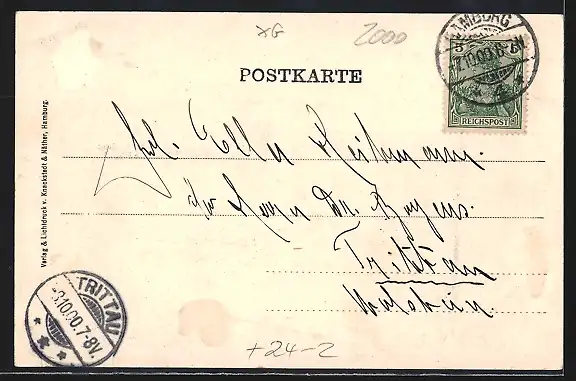 XG
2000
HAMBURG
7.10.00.
5
REICHSPOST
POSTKARTE
Frl. Ella
Herrn Dr.
Trittau
Holstein.
Verlag & Lichtdruck v. Knackstedt & Näther, Hamburg.
TRITTAU
8.10.00.7-8V.
+24-2